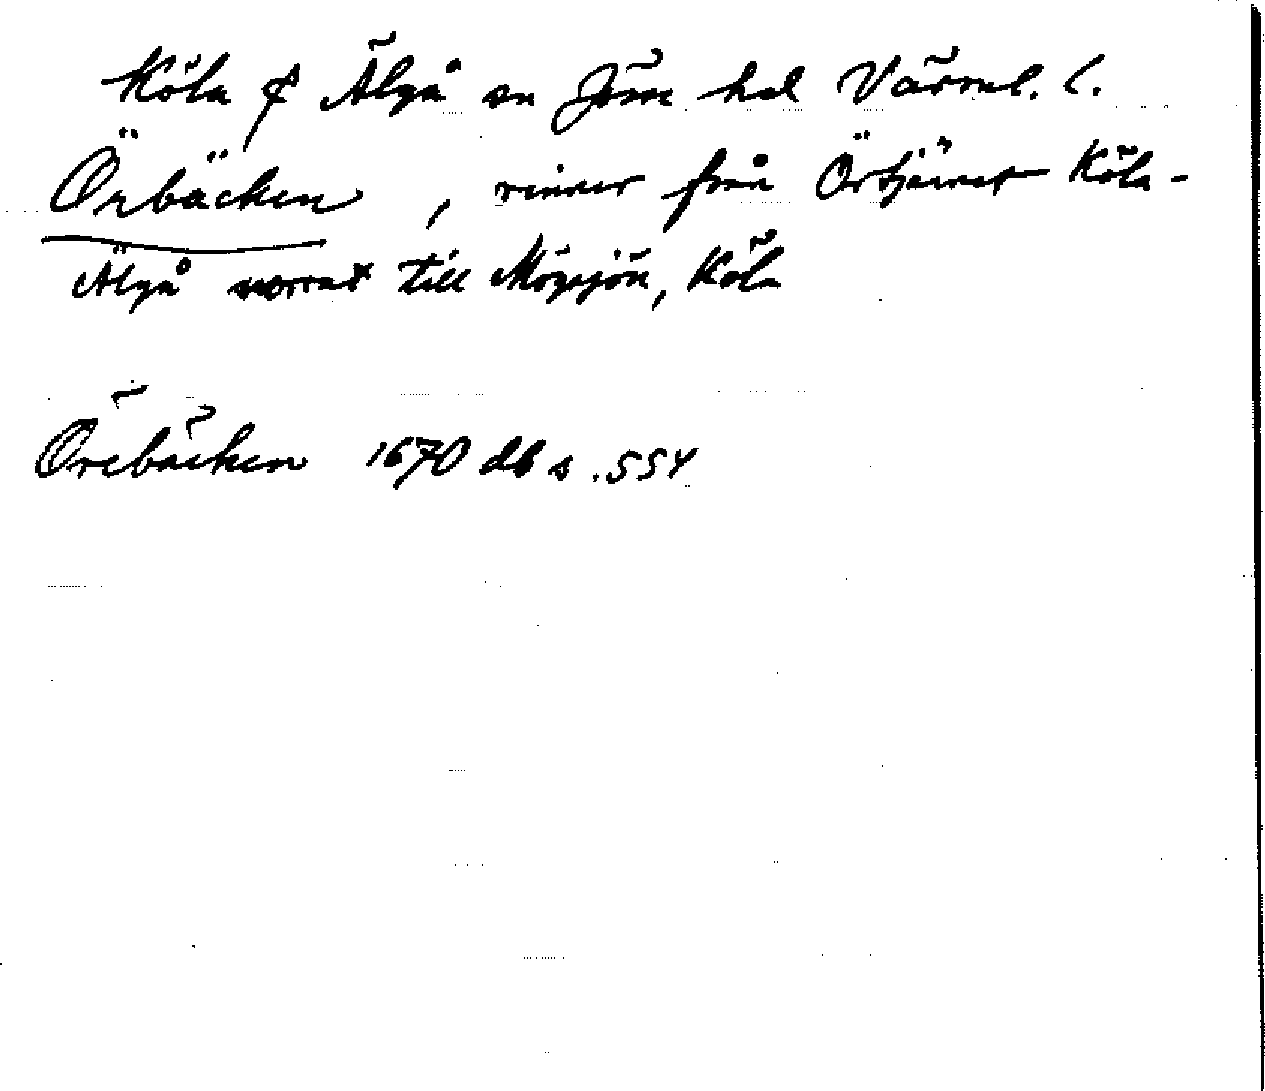 Köla & Älgå sn Jösse hd Värml. l.
Örbäcken, rinner från Örtjärnet Köla-
Älgå norrut till Mögsjön, Köla
Örebäcken 1670 db s. 554